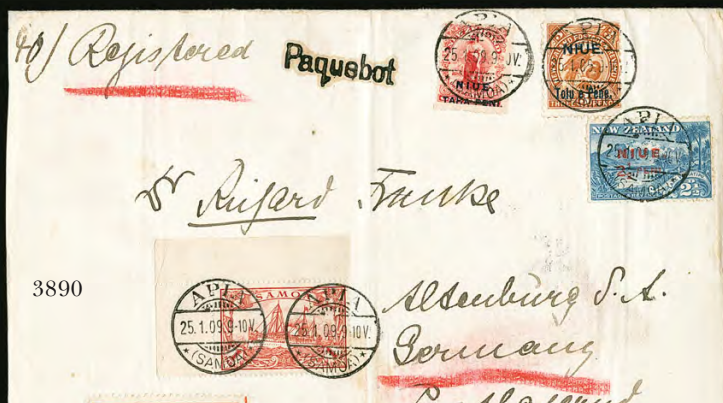 40/ Registered
Paquebot
APIA
25.1.09.9-10V.
(SAMOA)
NIUE
TAHA PENI.
APIA
NIUE
Tolu e Pene.
APIA
NEW ZEALAND
NIUE
2½
Dr Richard Franke
3890
SAMOA
APIA
25.1.09.9-10V.
★(SAMOA)★
APIA
25.1.09.9-10V.
★(SAMOA)★
Altenburg S. A.
Germany